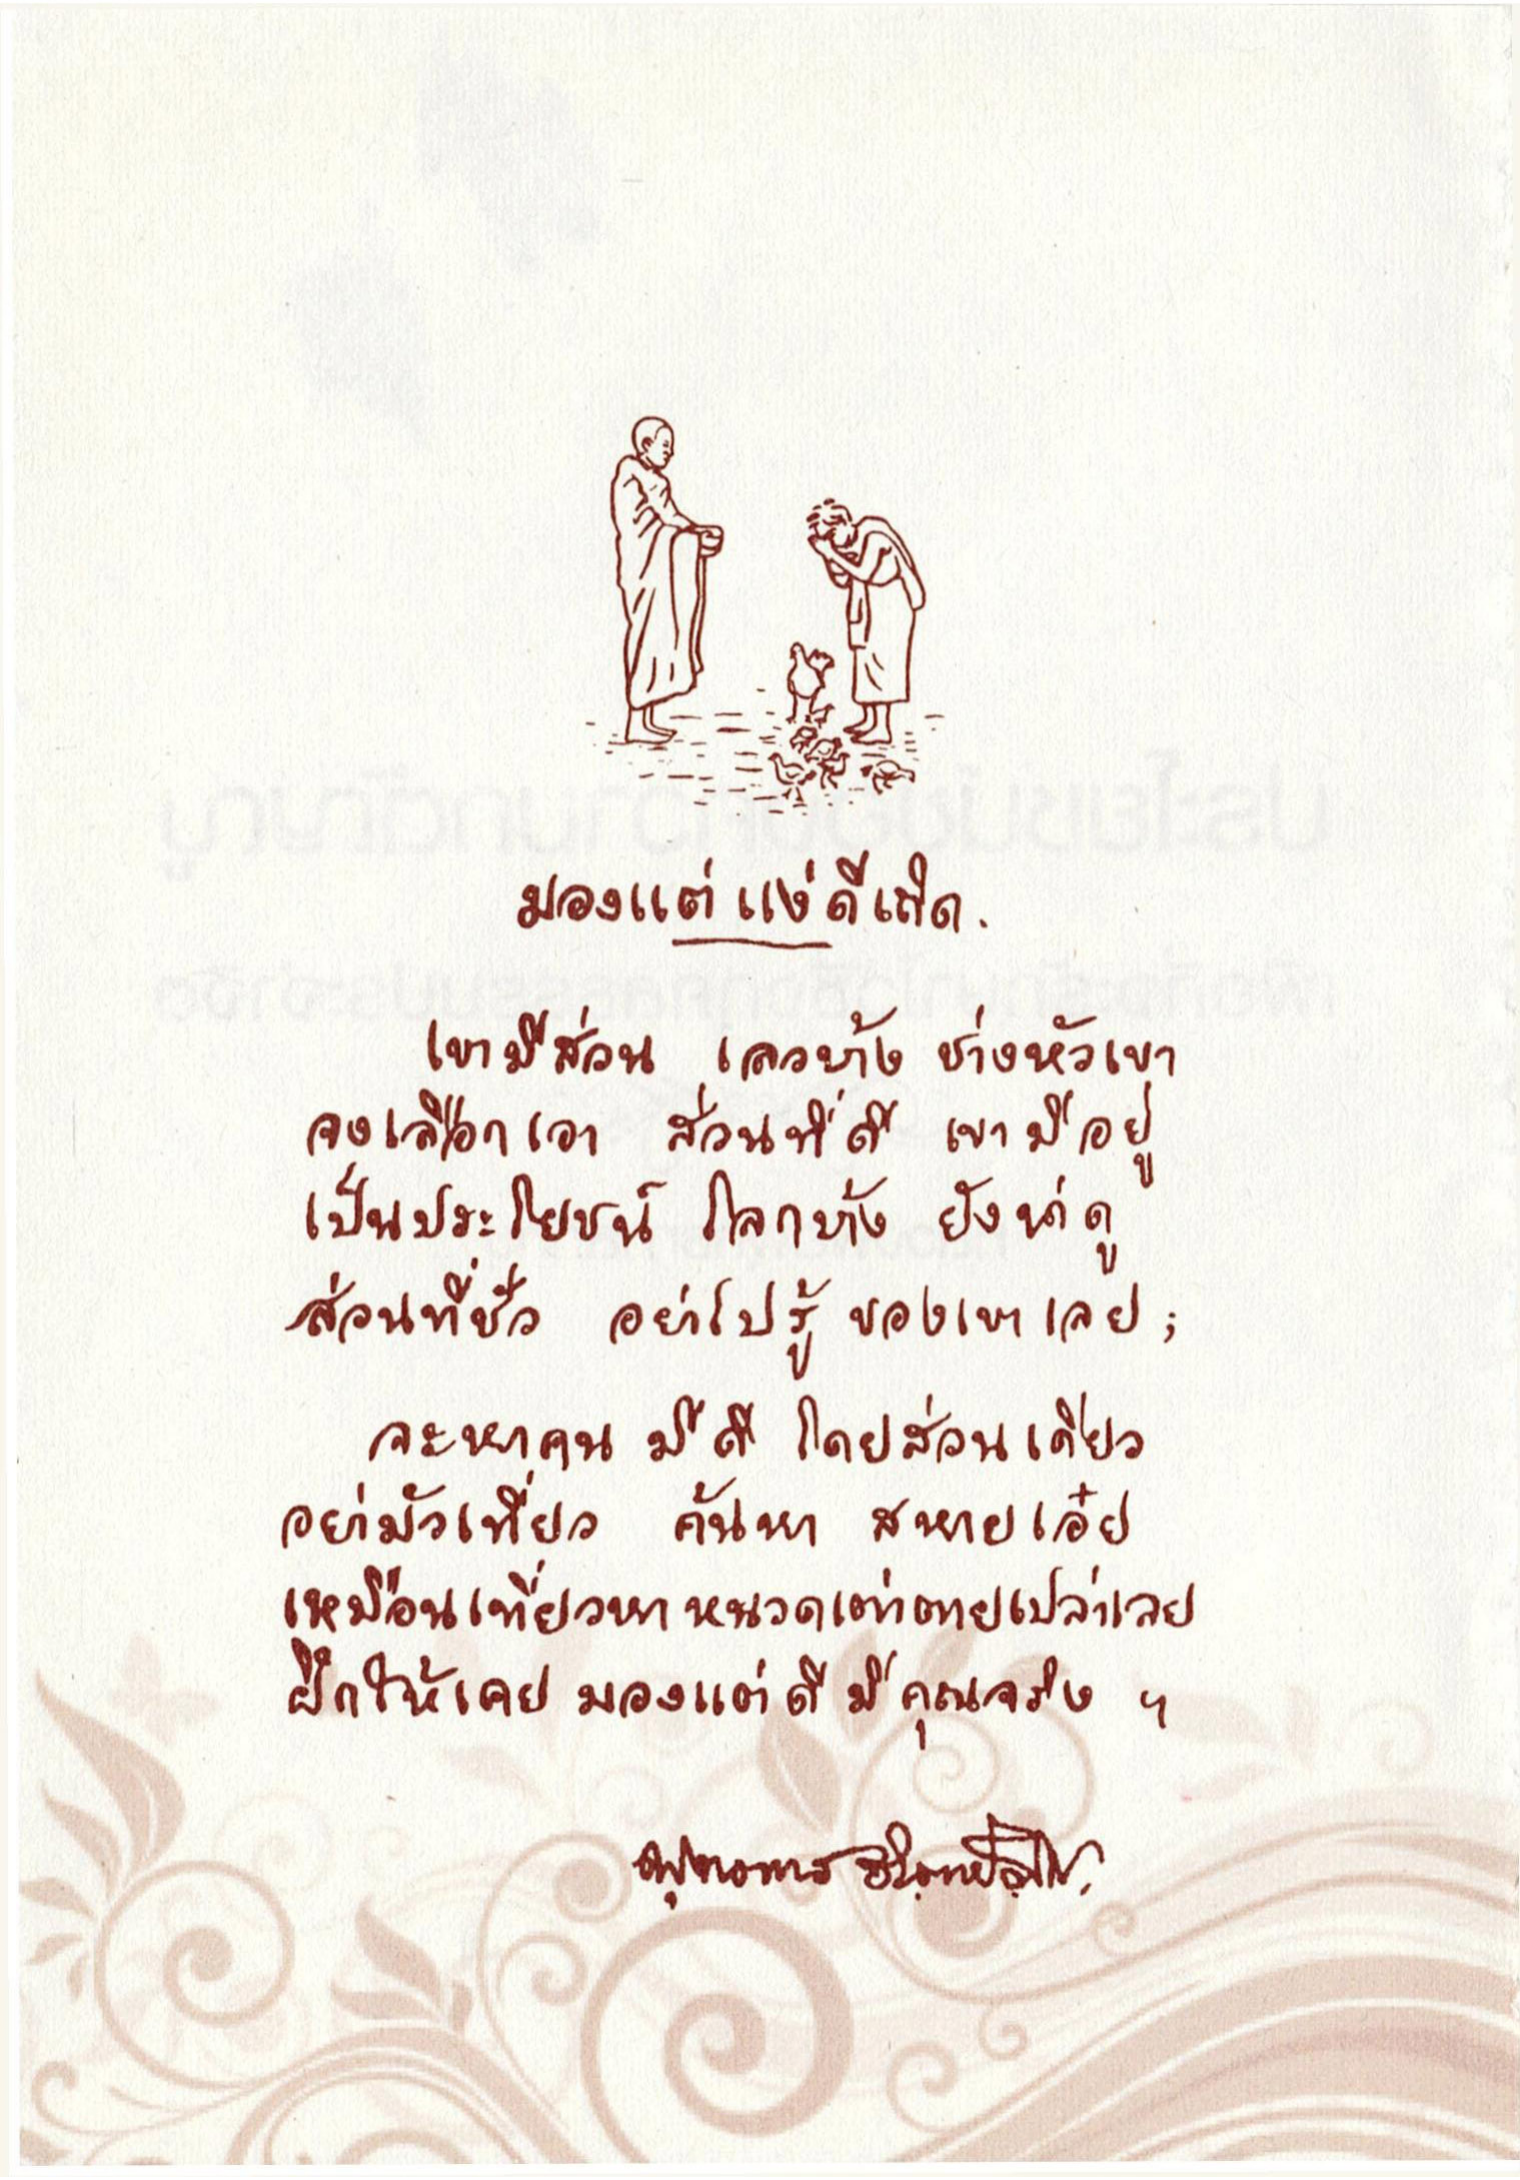 มองแต่แง่ดีเถิด.
เขามีส่วน เลวบ้าง ช่างหัวเขา
จงเลือกเอา ส่วนที่ดี เขามีอยู่
เป็นประโยชน์ โลกบ้าง ยังน่าดู
ส่วนที่ชั่ว อย่าไปรู้ ของเขาเลย;
จะหาคน มีดี โดยส่วนเดียว
อย่ามัวเที่ยว ค้นหา สหายเอ๋ย
เหมือนเที่ยวหา หนวดเต่าตายเปล่าเลย
ฝึกให้เคย มองแต่ดี มีคุณจริง ฯ
พุทธทาส อินฺทปญฺโญ.